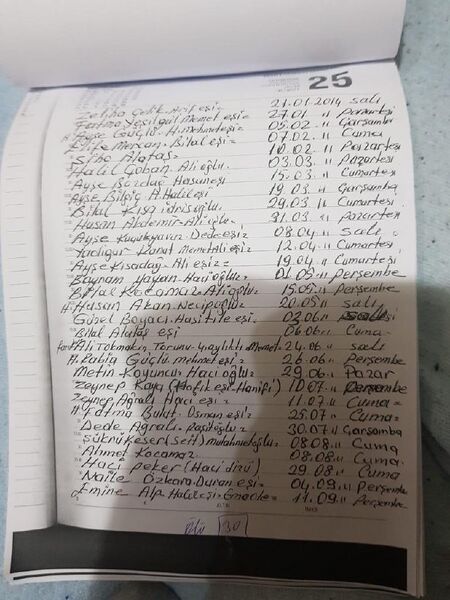 25
Zeliha Çelik Arif eşi = 21.01.2014 salı
Fatma Yeşilgül Memet eşi = 27.01 " Pazartesi
H. Ayşe Güçlü H. Mehmet eşi = 05.02 " Çarşamba
Elife Mercan Bilal eşi = 07.02 " Cuma
Sibo Alataş = 10.02 " Pazartesi
Halil Çoban Ali oğlu 03.03 " Pazartesi
Ayşe Bozdağ Hasan eşi 15.03 " Cumartesi
Ayşe Bilgiç H. Halil eşi 19.03 " Çarşamba
Bilal Kısa idris oğlu 29.03 " Cumartesi
Hasan Akdemir Ali oğlu 31.03 " Pazartesi
Ayşe Dede eşi 08.04 " Salı
Kurut Memet Ali eşi 12.04 " Cumartesi
Ayşe Kısadağ Ali eşi = 19.04 " Cumartesi
Bayram Hayan Haci oğlu = 01.05 " Perşembe
Bilal Kocamaz Ali oğlu 15.05 " Perşembe
H. Hasan Akan Necip oğlu = 20.05 " Salı
Güzel Boyacı eşi = 03.06 "
Bilal Alataş eşi 06.06 " Cuma
Ali Tokmakın Torunu Memet 24.06 " Salı
H. Rabia Güçlü mehmet eşi = 26.06 " Perşembe
Metin Koyuncu Haci oğlu = 29.06 " Pazar
Zeynep Kaya (Hanifi) 10.07 " Perşembe
Zeynep Ağralı Haci eşi 11.07 " Cuma
H. Fatma Bulut Osman eşi = 25.07 " Cuma
Dede Ağralı Raşit oğlu = 30.07 " Çarşamba
Şükrü Keser (Seit) 08.08 " Cuma
Ahmet Kocamaz 08.08 " Cuma
Haci Peker (Haci 29.08 " Cuma
Naile Özkara Duran eşi = 04.09 " Perşembe
Emine Alp Halil eşi 11.09 " Perşembe
Ölü 30